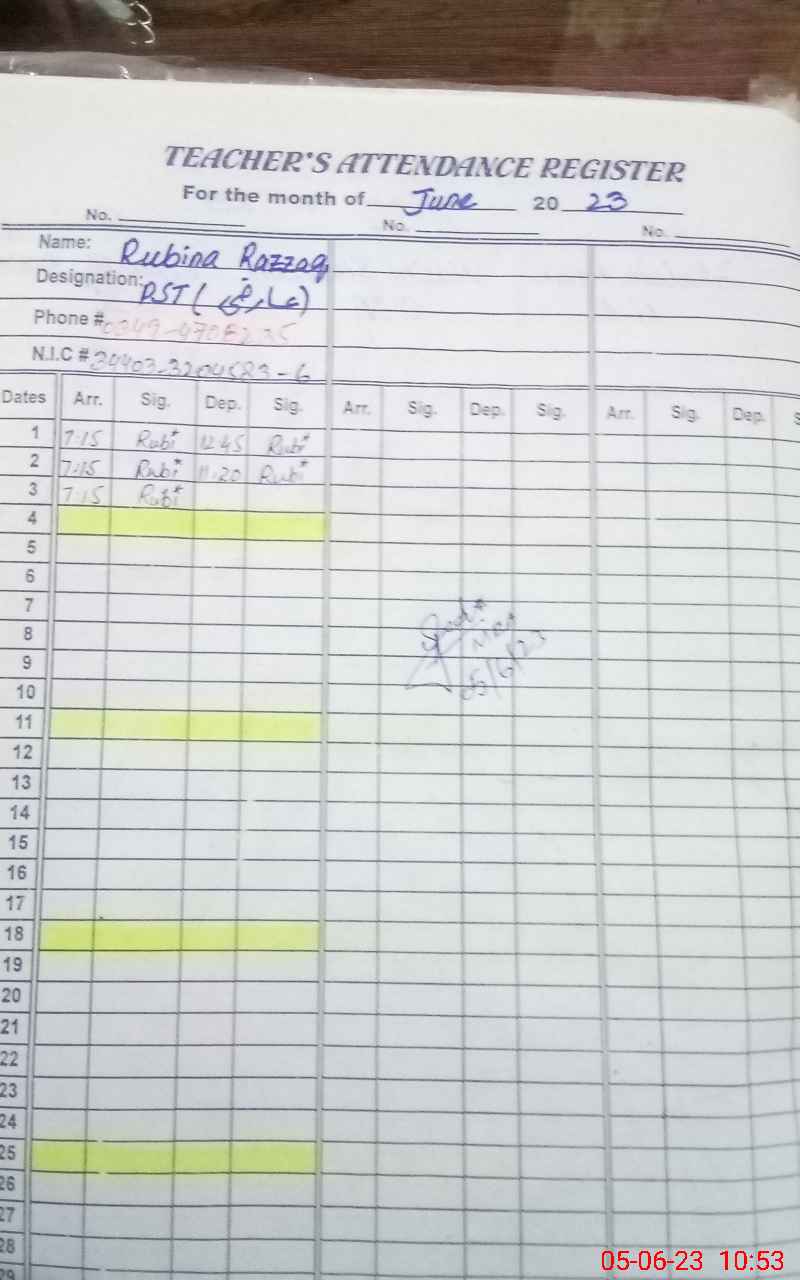 TEACHER'S ATTENDANCE REGISTER
For the month of June 2023
No. No. No.
Name: Rubina Razzaq
Designation: PST (عارضی)
Phone #
N.I.C #
Dates Arr. Sig. Dep. Sig. Arr. Sig. Dep. Sig. Arr. Sig. Dep. S
1 7:15 Rubi 12:45 Rubi
2 7:15 Rubi 11:20 Rubi
3 7:15 Rubi
4
5
6
7
8
9
10
11
12
13
14
15
16
17
18
19
20
21
22
23
24
25
26
27
28
29
05/6/23
05-06-23 10:53